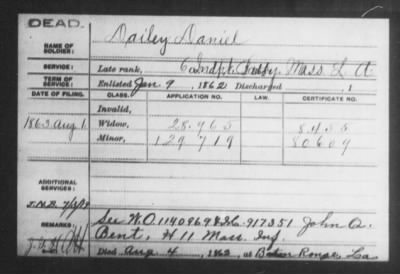 DEAD.
Dailey Daniel
NAME OF SOLDIER:
SERVICE:
Late rank, 6 Indpt. Batty. Mass L. A
TERM OF SERVICE:
Enlisted Jan 9, 1862 Discharged , 1
DATE OF FILING. CLASS. APPLICATION NO. LAW. CERTIFICATE NO.
Invalid,
1863 Aug 1. Widow, 28.965
Minor, 129719 80609
ADDITIONAL SERVICES:
REMARKS:
See W.O. 1140869 & I.C. 917351 John A.
Bent, H 11 Mass. Inf.
Died Aug 4, 1862, at Baton Rouge, La